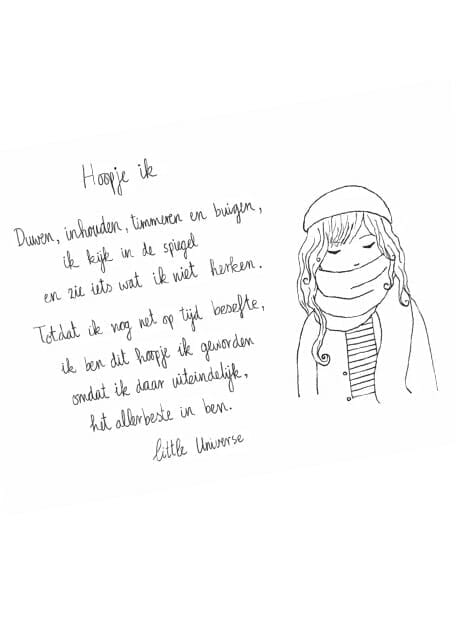 Hoopje ik
Duwen, inhouden, timmeren en buigen,
ik kijk in de spiegel
en zie iets wat ik niet herken.
Totdat ik nog net op tijd besefte,
ik ben dit hoopje ik geworden
omdat ik daar uiteindelijk,
het allerbeste in ben.
Little Universe